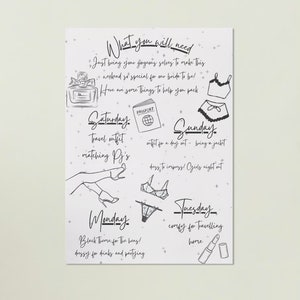 What you will need
Just bring your gorgeous selves to make this
weekend so special for our bride to be!
Here are some things to help you pack
PASSPORT
Saturday
travel outfit
matching Pj's
Sunday
outfit for a day out - bring a jacket
dress to impress! Girls night out
Monday
Black theme for the hens!
dressy for drinks and partying
Tuesday
comfy for travelling
home